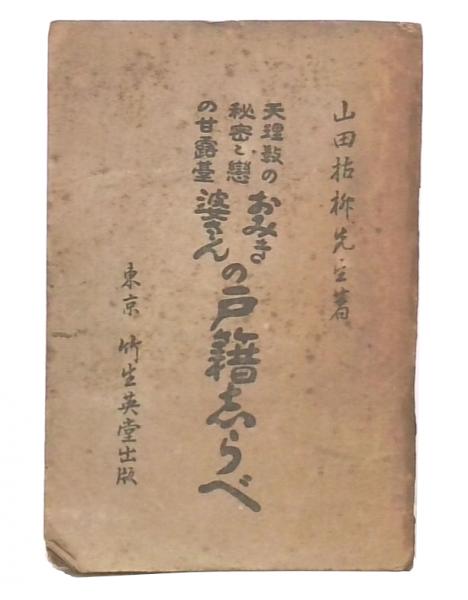 山田枯柳先生著
天理教の
秘密と戀
の甘露臺
おみき
婆さん
の戸籍志らべ
東京 竹生英堂出版